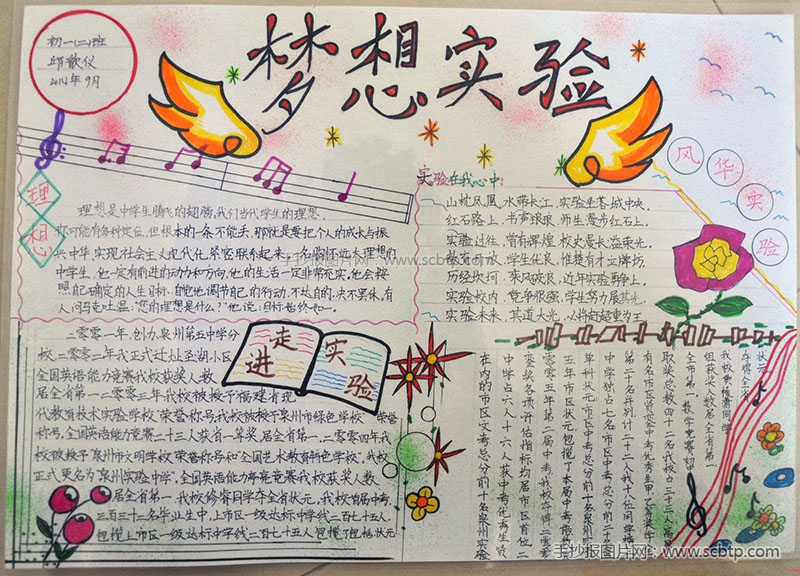 初一(二)班
邱歆仪
2014年9月
梦想实验
理想
理想是中学生腾飞的翅膀,我们当代学生的理想,
你可能有各种定位,但根本的一条不能丢,那就是要把个人的成长与振
兴中华,实现社会主义现代化,紧密联系起来。一名胸怀远大理想的
中学生,他一定有前进的动力和方向,他的生活一定非常充实,他会按
照自己确定的人生目标,自觉地调节自己的行动,不达目的,决不罢休。有
人问马克吐温:"您的理想是什么?"他说:目标始终如一。
实验在我心中:
水带长江,实验坐落城中央,
红石路上,书声琅琅,师生漫步红石上。
实验过往,曾有辉煌,校史漫长溢荣光。
教资力水,学生优良,惟楚有才立牌坊。
历经坎坷,乘风破浪,近年实验勇争上。
实验校内,竞争很强,学生努力展其光。
实验未来,其道大光,必将超越东为王。
风华实验
走进实验
二零零一年,创办泉州第五中学分
校,二零零二年我校正式迁址至湖小区
全国英语能力竞赛我校获奖人数
居全省第一,二零零三年我校被授予福建省现
代教育技术实验学校"荣誉称号,我校被授予泉州市绿色学校"荣誉
称号,全国英语能力竞赛二十三人获省一等奖,居全省第一。二零零四年我
校被授予泉州市文明学校"荣誉称号和"全国艺术教育特色学校"。我校
正式更名为"泉州实验中学"。全国英语能力竞赛我校获奖人数
居全省第一。我校修睿同学夺全省状元,我校首届中考,
三百三十二名毕业生中,上市区一级达标中学线二百七十五人,
包揽上市区一级达标中学线二百七十五人,包揽了市区包括状元
在内的市区文考总分前十名泉州实验
中学占六人十六人获中考优秀生
奖,各项评估指标均居市区首位,二
零零五年第二届中考,我校夺得二零零
五年市区状元,包揽了本届中考
单科状元,市区中考总分前十名泉州
中学独占七名市区中考总分前二
第二十名并列计二十二人我校十位同学
有名市区将实验中考优秀生甲
取奖总数四十二名我校占三十三人高
全市第一,数学竞赛初
组获奖人数居全省第一
我校 同学
夺得全省
状元
手抄报图片网:www.scbtp.com
手抄报图片网:www.scbtp.com